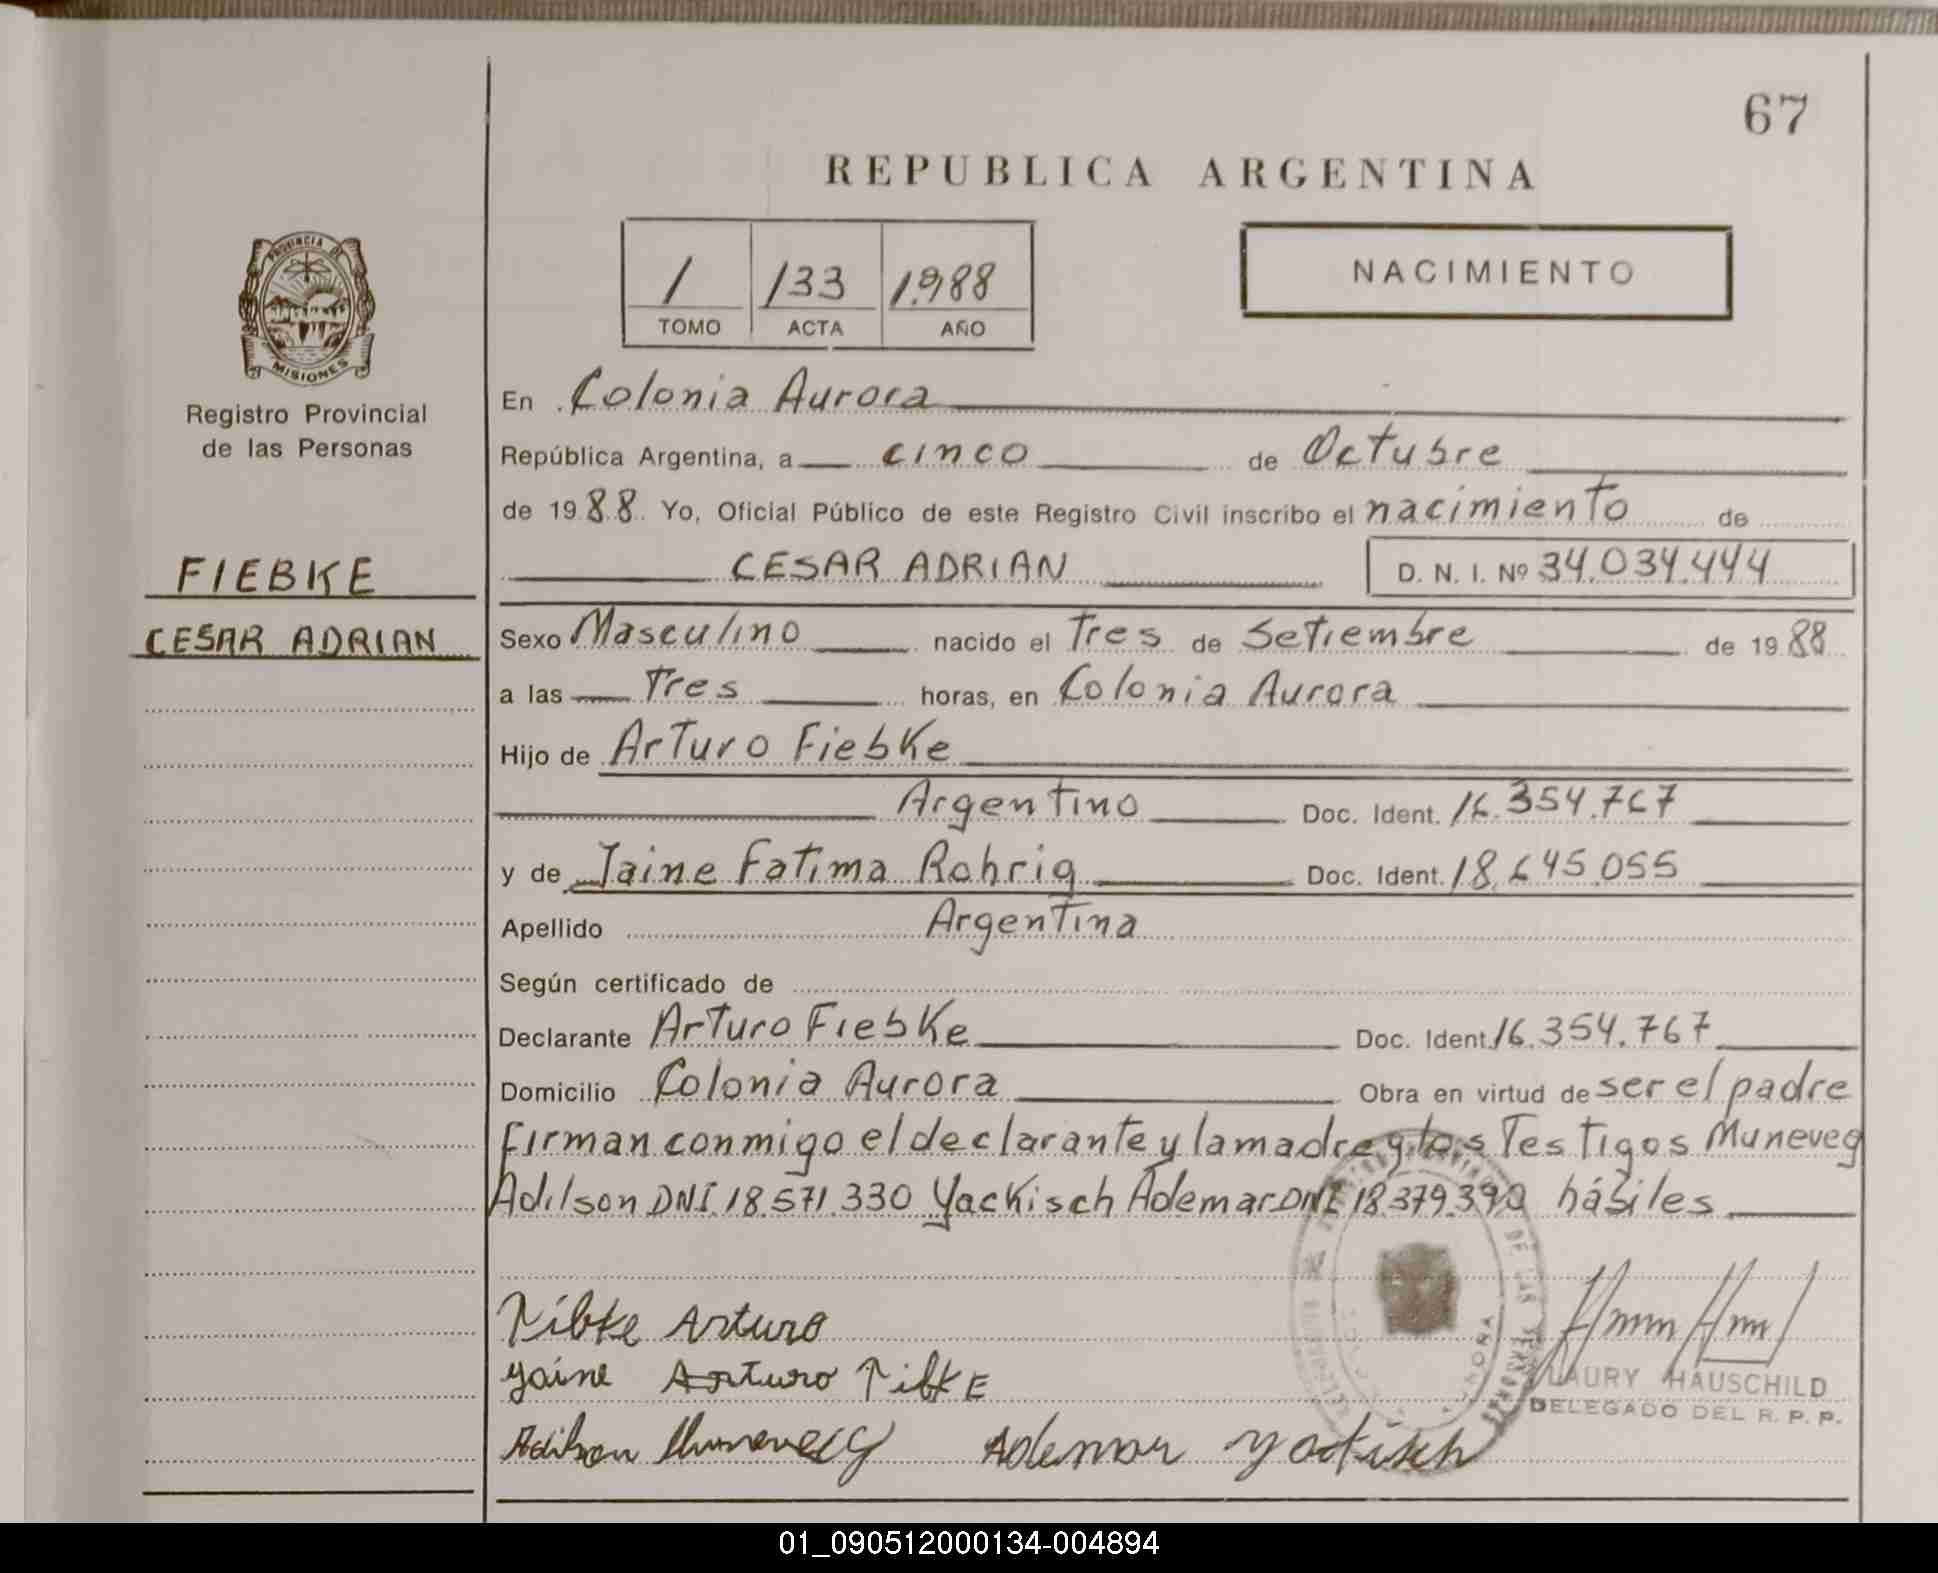 67
REPUBLICA ARGENTINA
1 133 1.988
TOMO ACTA AÑO
NACIMIENTO
PROVINCIA DE
MISIONES
Registro Provincial
de las Personas
FIEBKE
CESAR ADRIAN
En Colonia Aurora
República Argentina, a cinco de Octubre
de 1988 Yo, Oficial Público de este Registro Civil inscribo el nacimiento de
CESAR ADRIAN D. N. I. Nº 34.034.444
Sexo Masculino nacido el Tres de Setiembre de 1988
a las Tres horas, en Colonia Aurora
Hijo de Arturo Fiebke
Argentino Doc. Ident. 16.354.767
y de Jaine Fatima Rohrig Doc. Ident. 18.645.055
Apellido Argentina
Según certificado de
Declarante Arturo Fiebke Doc. Ident. 16.354.767
Domicilio Colonia Aurora Obra en virtud de ser el padre
firman conmigo el declarante y la madre y los Testigos Muneveg
Adilson DNI.18.571.330 Yackisch Ademar DNI 18.379.390 hábiles
Fibke Arturo
Jaine Arturo Fibke
Adilson Ademar
LAURY HAUSCHILD
DELEGADO DEL R. P. P.
01_090512000134-004894